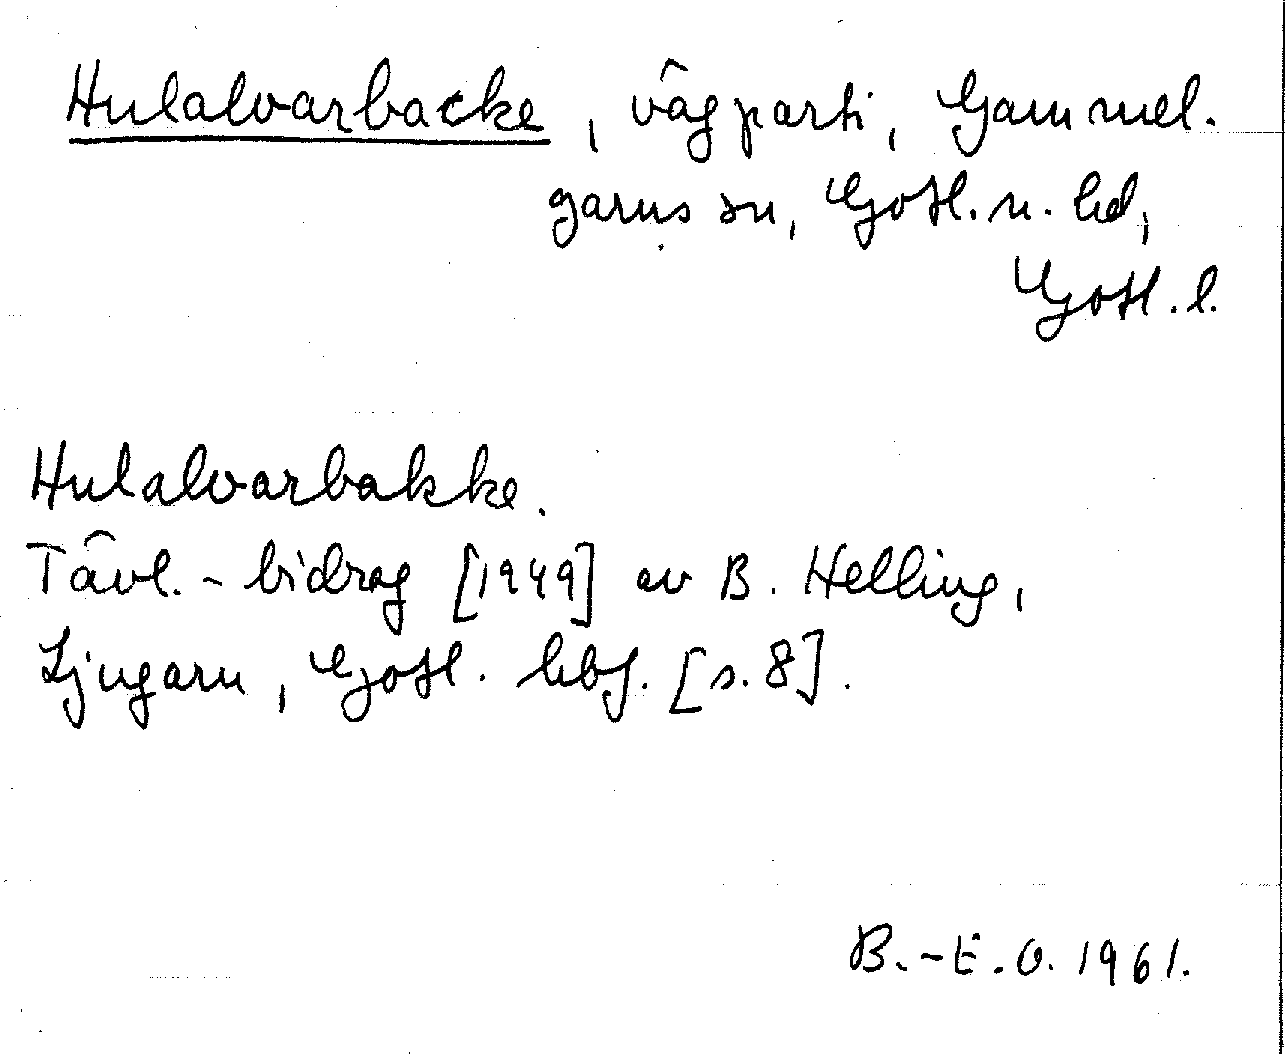 Hulalvarbacke, vägparti, Gammel-
garns sn, Gotl. n. hd,
Gotl. l.
Hulalvarbakke.
Tävl.-bidrag [1949] av B. Helling,
Ljugarn, Gotl. hbf. [s. 8].
B.-E.O. 1961.